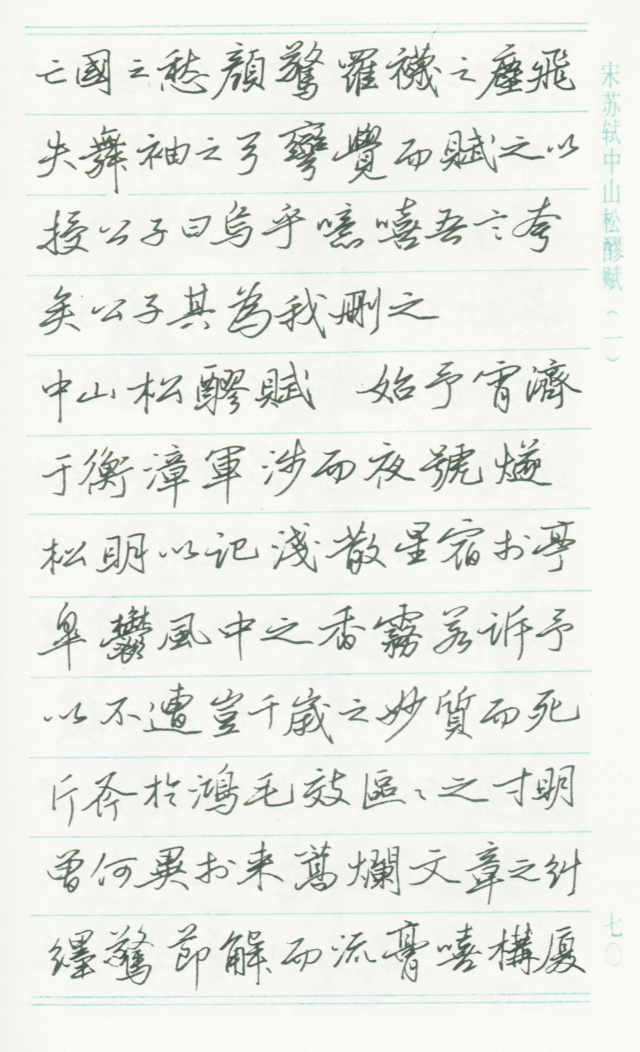 亡國之愁顏驚羅襪之塵飛
失舞袖之弓彎覺而賦之以
授公子曰烏乎噫嘻吾言夸
矣公子其為我刪之
中山松醪賦　始予宵濟
于衡漳軍涉而夜號燧
松明以記淺散星宿於亭
皐鬱風中之香霧若訴予
以不遭豈千歲之妙質而死
斤斧於鴻毛效區〻之寸明
曾何異於束蒿爛文章之糾
纏驚節解而流膏嘻構廈
宋苏轼中山松醪赋（一）
七〇